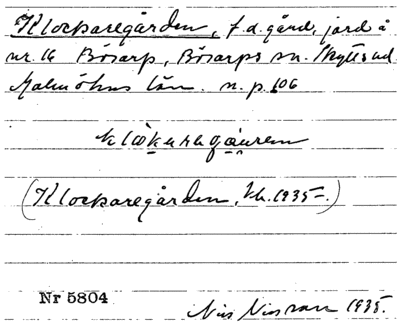 Klockaregården, f.d. gård, jord å
nr. 16 Bösarp, Bösarps sn. Skytts hd.
Malmöhus län. n.p. 106
(Klockaregården, kh. 1935–.)
Nr 5804
Nils Nilsson 1935.